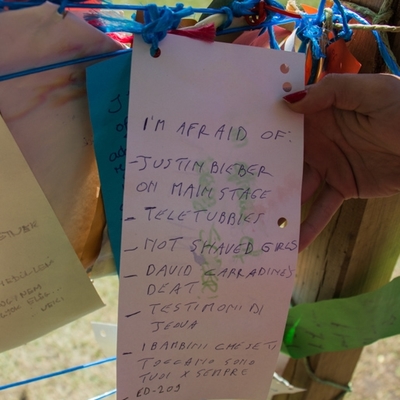 I'M AFRAID OF:
- JUSTIN BIEBER
ON MAIN STAGE
- TELETUBBIES
- NOT SHAVED GIRLS
- DAVID CARRADINE'S
DEAT
- TESTIMONI DI
JEOVA
- I BAMBINI CHE SE TI
TOCCANO SONO
TUOI X SEMPRE
- ED-209